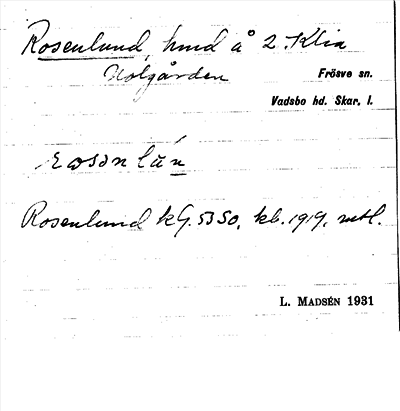 Rosenlund, hmd å 2. Klia
Holgården
Frösve sn.
Vadsbo hd. Skar. l.
Rosenlund kG. 53 SO, kb. 1919, mtl.
L. MADSÉN 1931